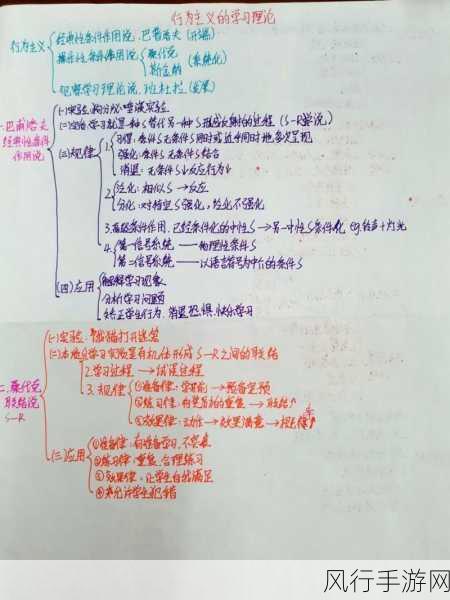 行为主义的学习理论
行为主义
经典性条件作用说 巴甫洛夫 (开端)
操作性条件作用说 桑代克
斯金纳 (系统化)
观察学习理论说 班杜拉 (发展)
一.巴甫洛夫
经典性条件
作用说
(一)实验:狗分泌唾液实验
(二)结论:学习就是一种S替代另一种S形成反射的过程 (S-R学说)
(三)规律
1.
习得:条件S无条件S同时或近乎同时地多次呈现
强化:条件S无条件S结合
消退:无条件S↓反应行为↓
2.
泛化:相似S→反应
分化:对特定S强化,泛化不强化
3.高级条件作用,已经条件化的中性S→另一中性S条件化 eg.铃声+灯光
4.
第一信号系统——物理性条件S
第二信号系统——以语言符号为中介的条件S
(四)应用
解释学习现象
分析学习问题
矫正学生行为,消退恐惧,快乐学习
二.桑代克
联结说
S-R
(一)实验:饿猫打开迷笼
(二)
学习实质是有机体形成S-R之间的联结
2.学习过程→试误过程
3.规律
①准备律:学习前→预备定势
②练习律:有奖励的重复→联结↑
③效果律:动作→效果满意→
(三)应用
①准备律:有准备学习,不突袭
②练习律:重复,合理练习
③效果律:让学生自我满足
④允许学生犯错
风行手游网
www.fxsyw.net